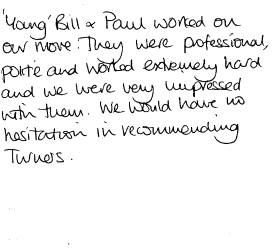 'Young' Bill & Paul worked on
our move. They were professional,
polite and worked extremely hard
and we were very impressed
with them. We would have no
hesitation in recommending
Turners.